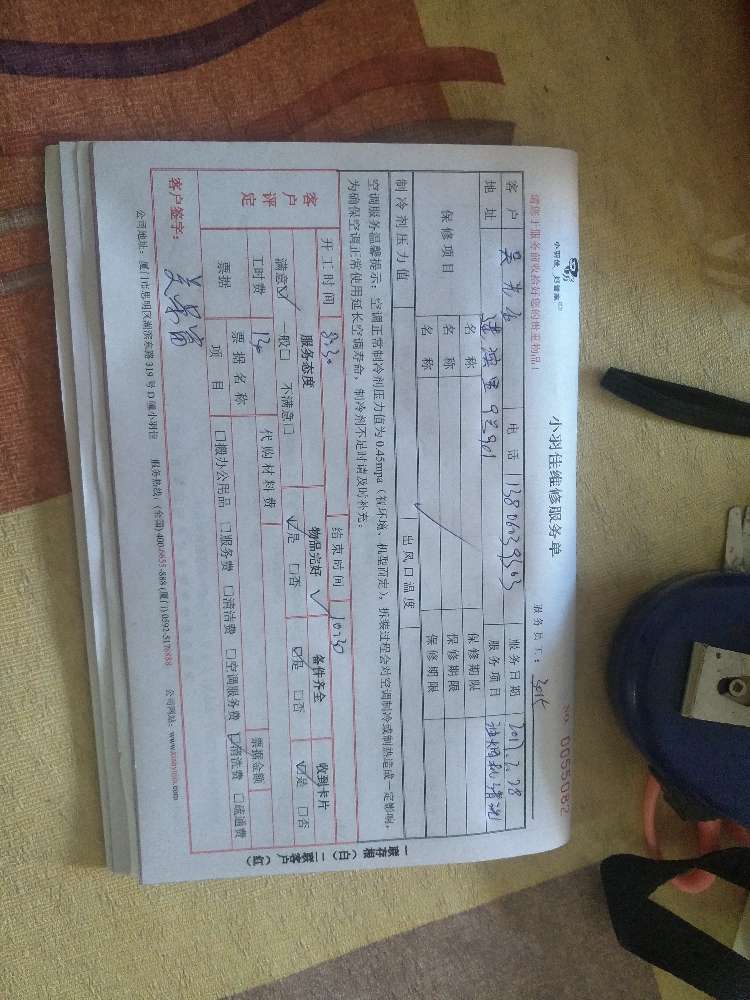 小羽佳维修服务单
NO. 0055082
请您于服务前收拾好您的贵重物品!
服务员工:
客户 电话 服务日期
地址 服务项目 油烟机清洗
保修项目 名称 保修期限
名称 保修期限
名称 保修期限
制冷剂压力值 出风口温度
空调服务温馨提示:空调正常制冷剂压力值为0.45mpa(看环境、机型而定),拆装过程会对空调制冷或制热造成一定影响,
为确保空调正常使用延长空调寿命,制冷剂不足时请及时补充。
开工时间 8:30 结束时间 10:30
客户评定 服务态度 物品完好 备件齐全 收到卡片
满意☑ 一般□ 不满意□ ☑是 □否 ☑是 □否 ☑是 □否
工时费 130 代购材料费
票据 票据名称 票据金额
项目 □搬办公用品 □服务费 □清洁费 □空调服务费 ☑清洗费 □疏通费
客户签字:
公司地址:厦门市思明区湖滨东路319号D幢小羽佳 服务热线:(全国)400-6655-888(厦门)0592-5176888 公司网站:www.xiaoyujia.com
一联存根(白) 二联客户(红)